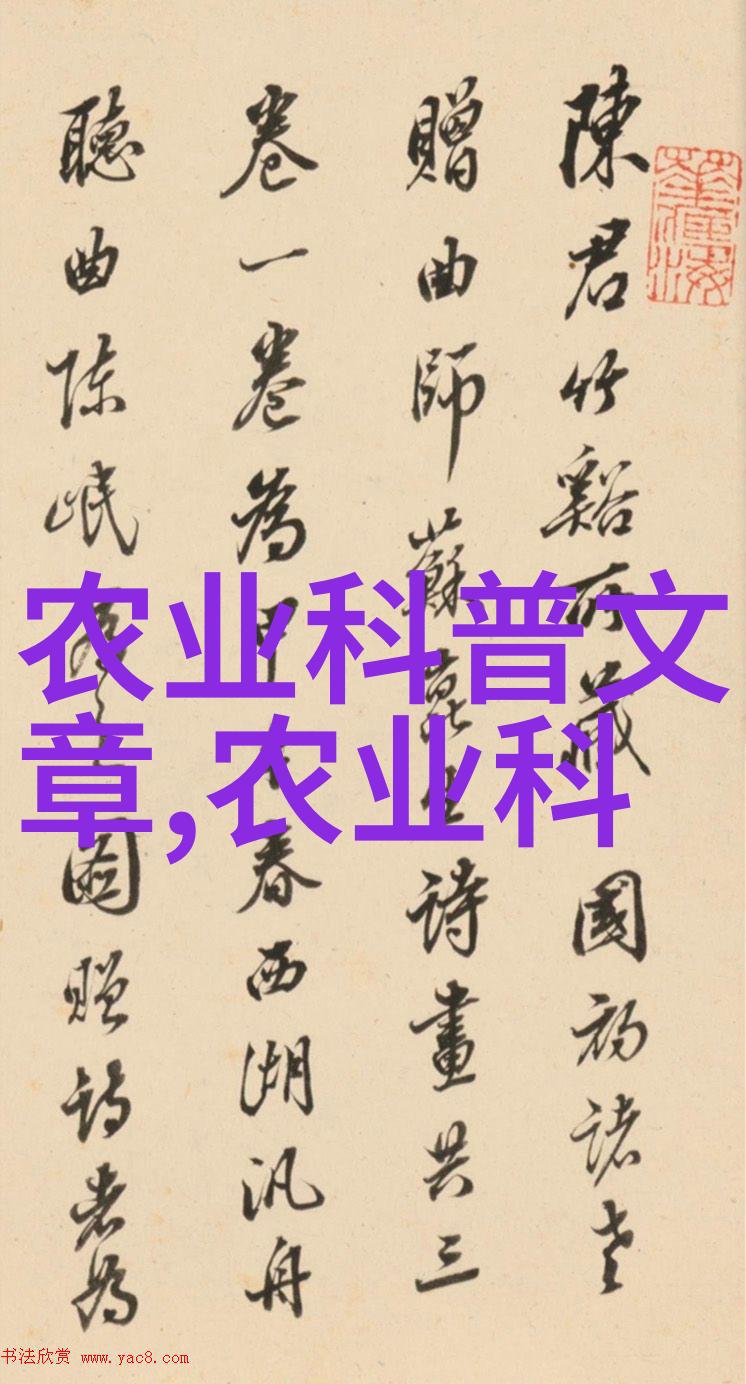 陳君竹谿所藏國初諸老
贈曲師蘇崑生詩畫共三
卷一卷為甲春西湖汎舟
聽曲陈岷圖贈詩者為
农业科普文
章,农业科
书法欣赏 www.yac8.com